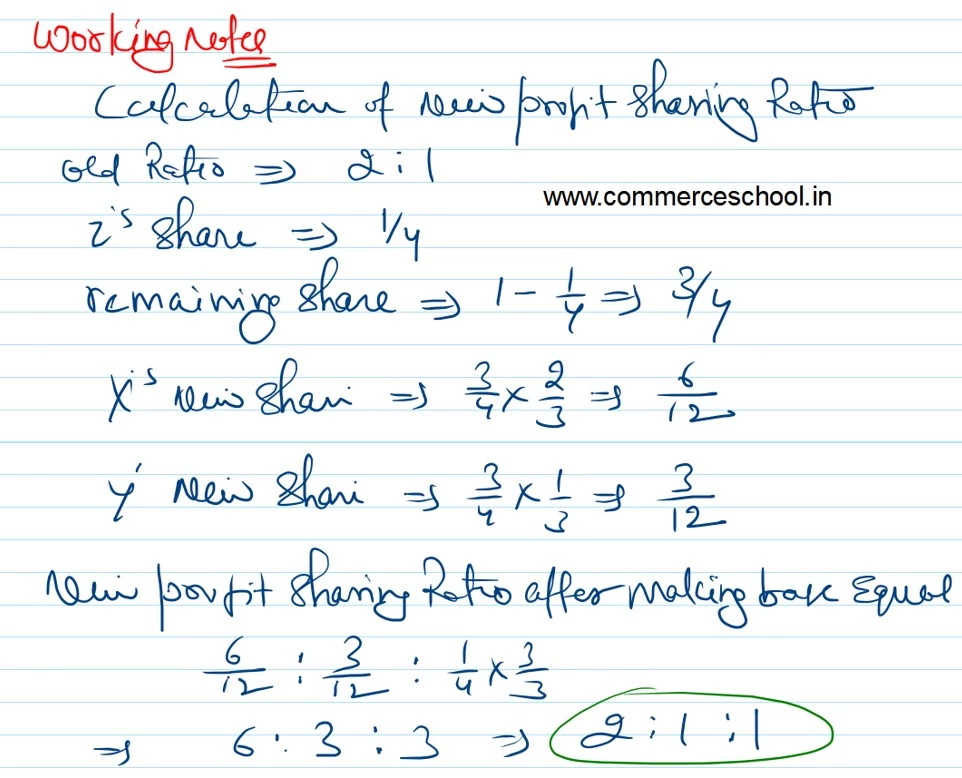 Working Notes
Calculation of New profit sharing Ratio
Old Ratio ⇒ 2 : 1
www.commerceschool.in
Z's share ⇒ 1/4
remaining share ⇒ 1 - 1/4 ⇒ 3/4
X's New Share ⇒ 3/4 × 2/3 ⇒ 6/12
Y' New Share ⇒ 3/4 × 1/3 ⇒ 3/12
New profit sharing Ratio after making base Equal
6/12 : 3/12 : 1/4 × 3/3
⇒ 6 : 3 : 3 ⇒ 2 : 1 : 1